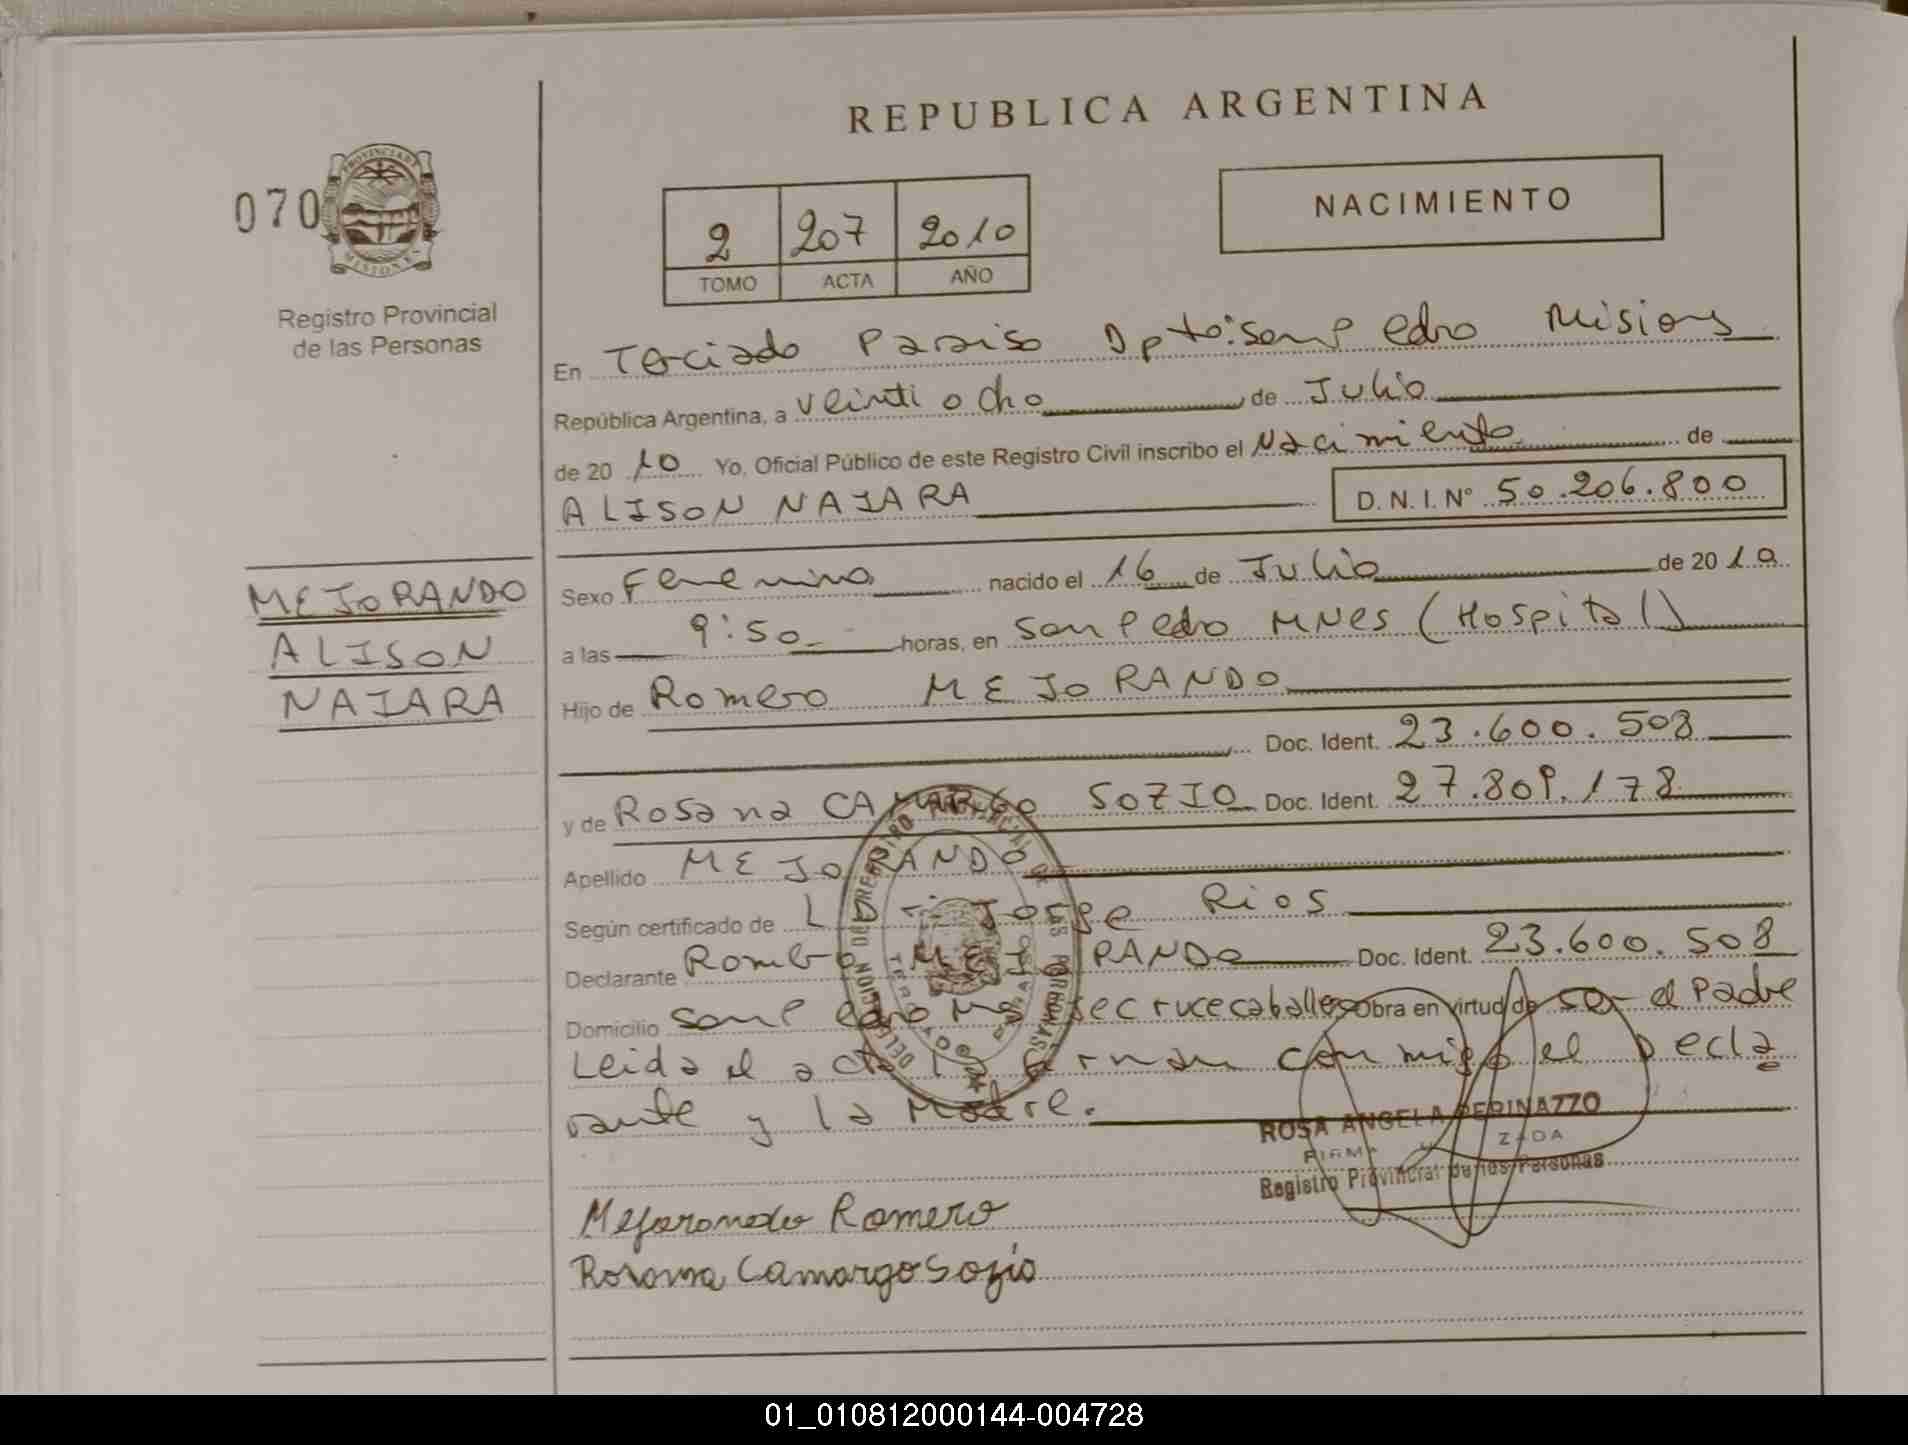 REPUBLICA ARGENTINA
070
PROVINCIA DE
MISIONES
Registro Provincial
de las Personas
2 207 2010
TOMO ACTA AÑO
NACIMIENTO
En Terciado Paraiso Dpto: San Pedro Misiones
República Argentina, a veintiocho de Julio
de 20 10 Yo, Oficial Público de este Registro Civil inscribo el Nacimiento de
ALISON NAIARA D.N.I.N° 50.206.800
MEJORANDO
ALISON
NAIARA
Sexo Femenino nacido el 16 de Julio de 2010
a las 9:50 horas, en San Pedro MNES (Hospital)
Hijo de Romero MEJORANDO
Doc. Ident. 23.600.508
y de Rosana CAMARGO SOZIO Doc. Ident. 27.809.178
Apellido MEJORANDO
Según certificado de Jorge Rios
Declarante Romero MEJORANDO Doc. Ident. 23.600.508
Domicilio San Pedro cruce caballero Obra en virtud de ser el Padre
Leida el acta la firman conmigo el Decla
rante y la Madre.
ROSA ANGELA PERINAZZO
Registro Provincial de las Personas
Mejorando Romero
Rosana Camargo Sozio
01_010812000144-004728